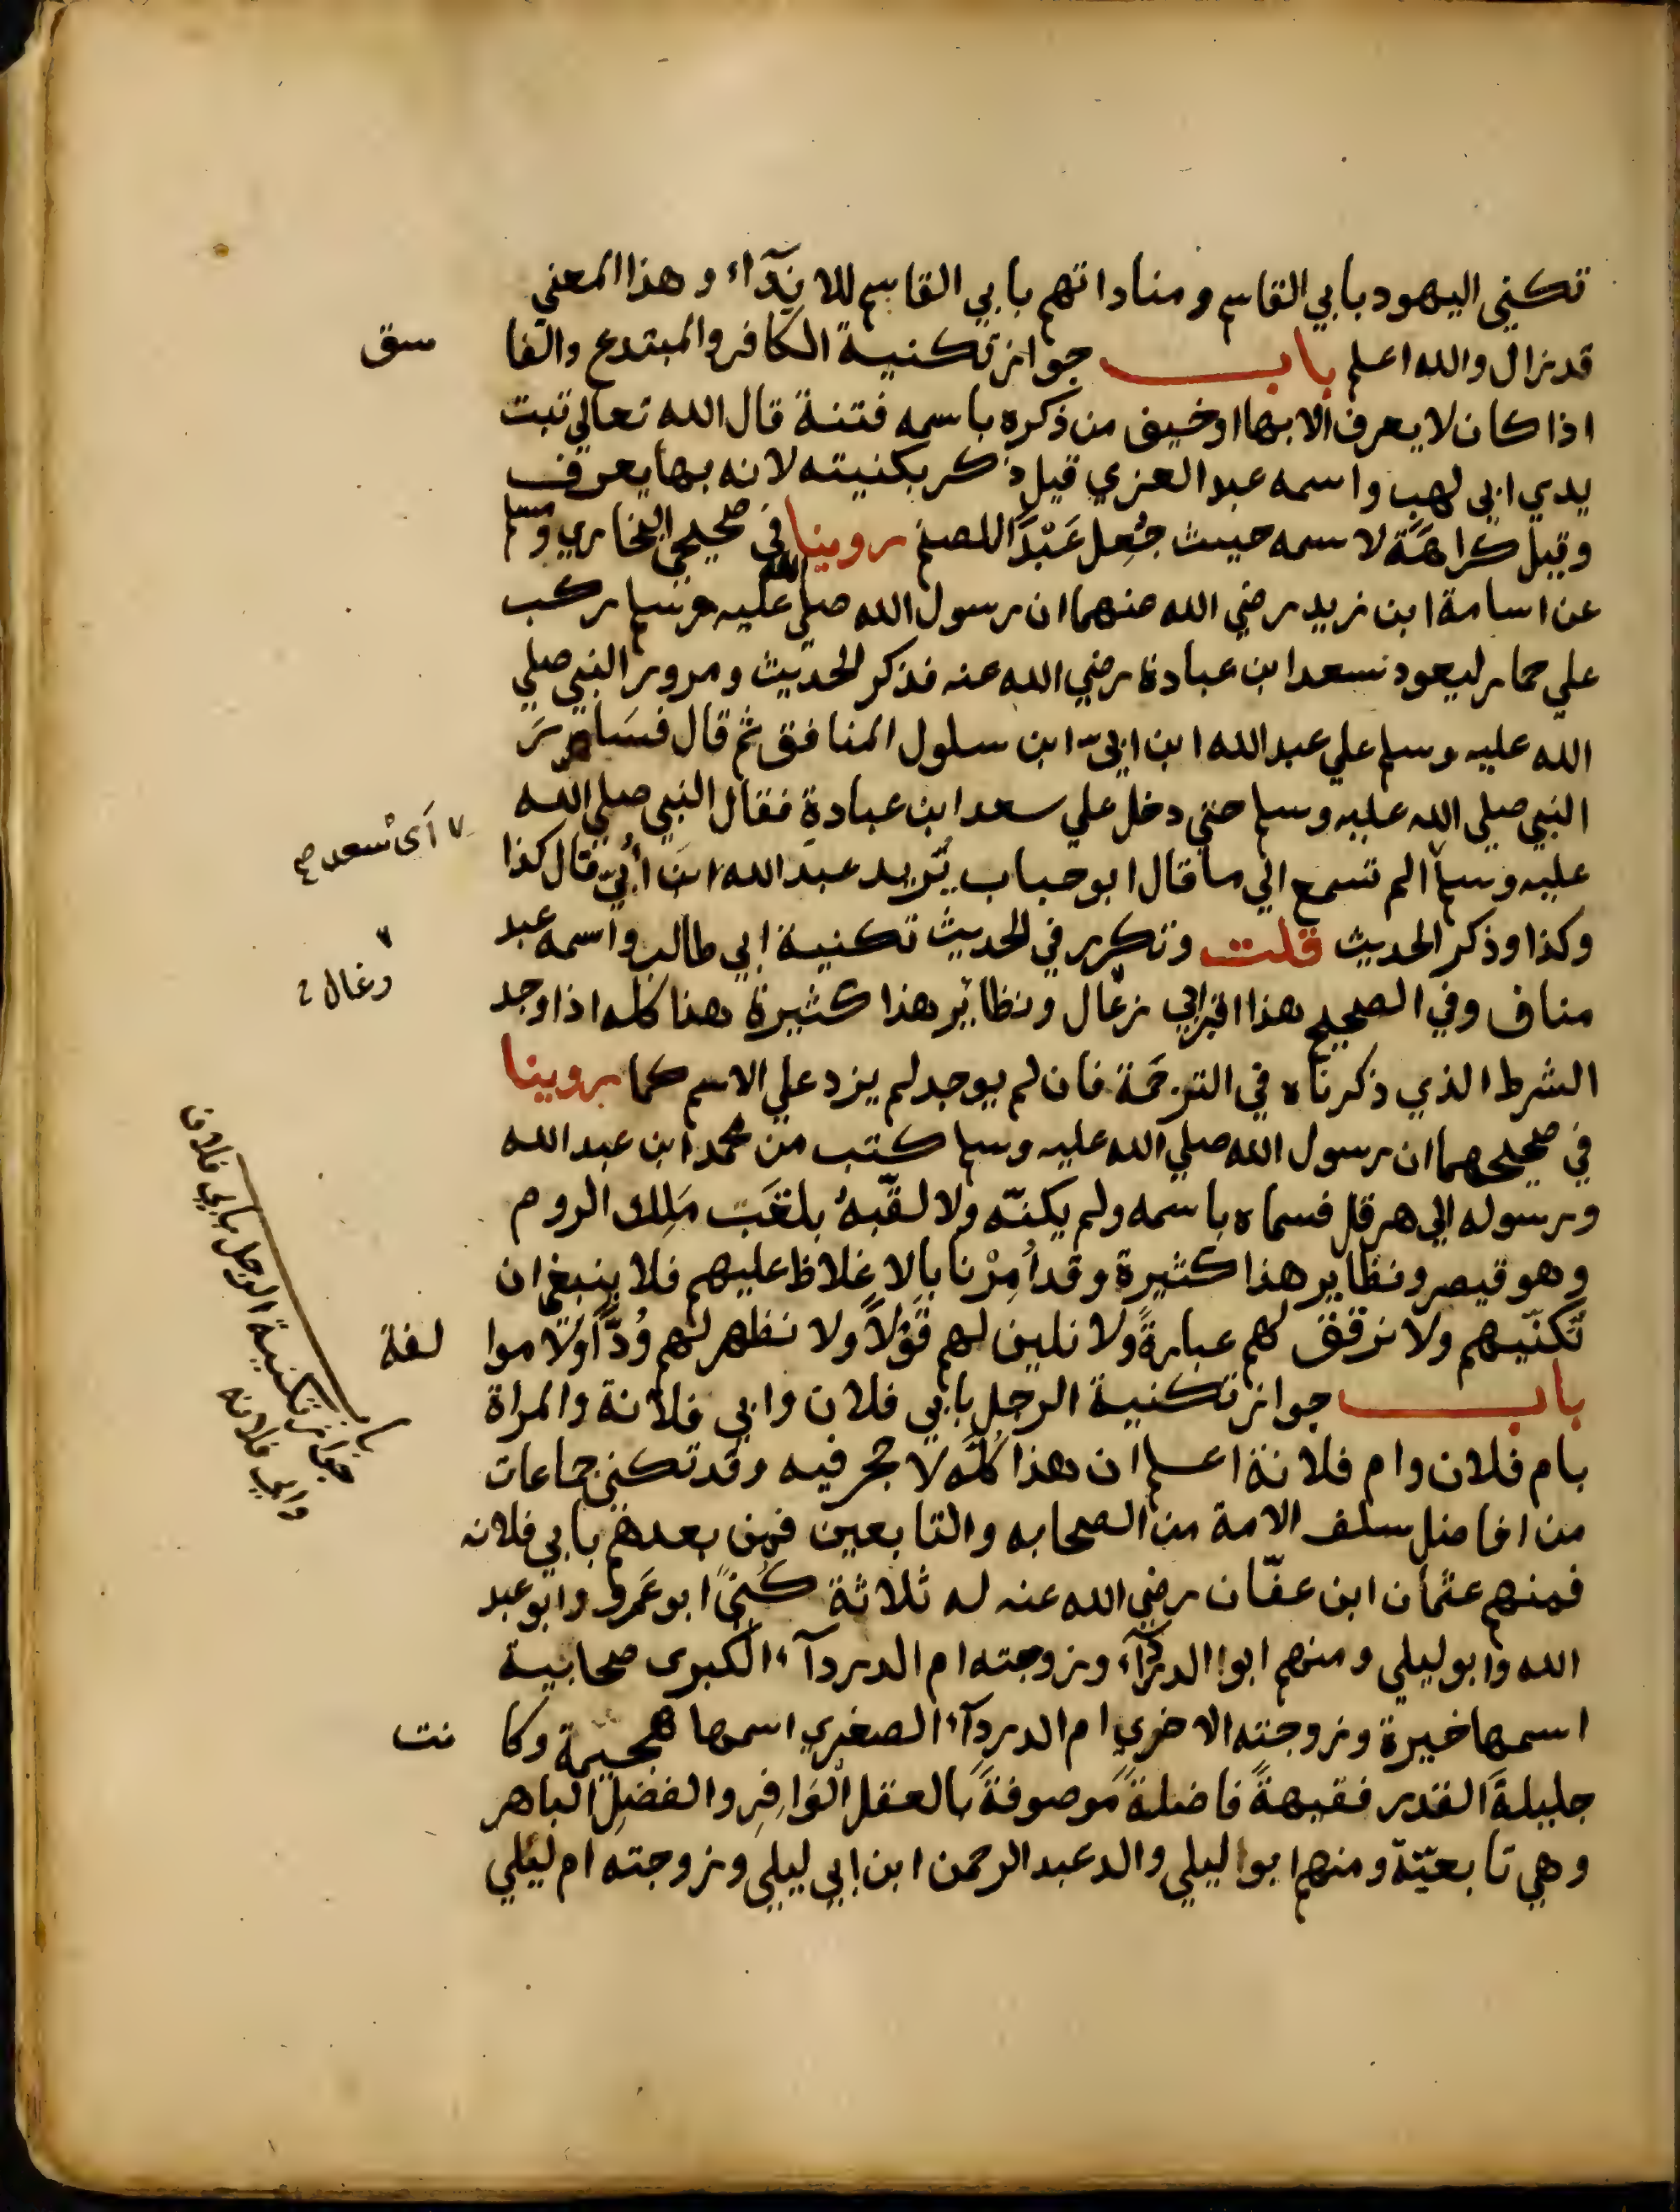 تكني اليهود بابي القاسم ومناداتهم بابي القاسم للايذآء وهذا المعني
قد زال والله اعلم باب جواز تكنية الكافر والمبتدع والفاسق
اذا كان لا يعرف الا بها او خيف من ذكره باسمه فتنة قال الله تعالي تبت
يدي ابي لهب واسمه عبد العزي قيل ذكر بكنيته لانه بها يعرف
وقيل كراهَةً لاسمه حيث جُعِل عَبْدًا للصنم روينا في صحيحي البخاري ومسلم
عن اسامة ابن زيد رضي الله عنهما ان رسول الله صلي الله عليه وسلم ركب
علي حمار ليعود سعد ابن عبادة رضي الله عنه فذكر الحديث ومرور النبي صلي
الله عليه وسلم علي عبد الله ابن ابيّ ابن سلول المنافق ثم قال فسَارَ
النبي صلي الله عليه وسلم حتي دخل علي سعد ابن عبادة فقال النبي صلي الله
٧ اَىْ سعد صح
عليه وسلم الم تسمع الي ما قال ابو حباب يُريد عبد الله ابنَ أُبيّ قال كذا
وكذا وذكر الحديث قلت وتكرر في الحديث تكنية ابي طالب واسمه عبد
مناف وفي الصحيح هذا اقبر ابي زغال ونظائر هذا كثيرة هذا كله اذا وجد
٧ وغال
الشرط الذي ذكرناه في الترجمَة فان لم يوجد لم يزد علي الاسم كما روينا
في صحيحهما ان رسول الله صلي الله عليه وسلم كتب من محمد ابن عبد الله
ورسوله الي هرقل فسماه باسمه ولم يكنّه ولا لقّبهُ بلقَب مَلِك الروم
وهو قيصر ونظاير هذا كثيرة وقد اُمِرْنا بالاِغلاظ عليهم فلا ينبغي ان
نُكنّيهم ولا نرقق لهم عبارةً ولا نلين لهم قَوْلاً ولا نظهر لهم وُدًّا ولا موالفة
باب جواز تكنية الرجل بابي فلان وابي فلانة والمراة
باب جواز تكنية الرجل بابي فلان وابي فلانه
بام فلان وام فلانة اعلم ان هذا كُلَّه لا حجر فيه وقد تكني جماعات
من افاضل سلف الامة من الصحابه والتابعين فمن بعدهم بابي فلانه
فمنهم عثمان ابن عفّان رضي الله عنه له ثلاثة كُنًى ابو عَمرو وابو عبد
الله وابو ليلي ومنهم ابوا الدردآء وزوجته ام الدردآء الكبرى صحابية
اسمها خيرة وزوجته الاخري ام الدردآء الصغري اسمها هجيمة وكانت
جليلةَ القدر فقيهةً فاضلةً مَوصوفةً بالعقل الْوَافِرِ والفضلِ الباهر
وهي تابعيّة ومنهم ابوا ليلي والد عبد الرحمن ابن ابي ليلي وزوجته ام ليْلي